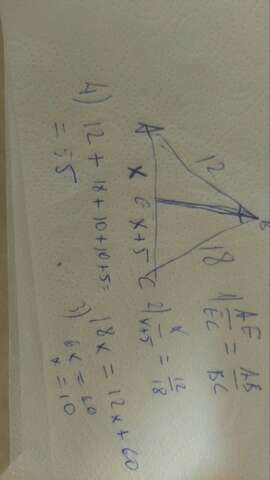 A
12
B
x
E
x+5
18
C
1) AE/EC = AB/BC
2) x/x+5 = 12/18
18x = 12x+60
3) 6x = 60
x = 10
4) 12 + 18+10+10+5=
= 55